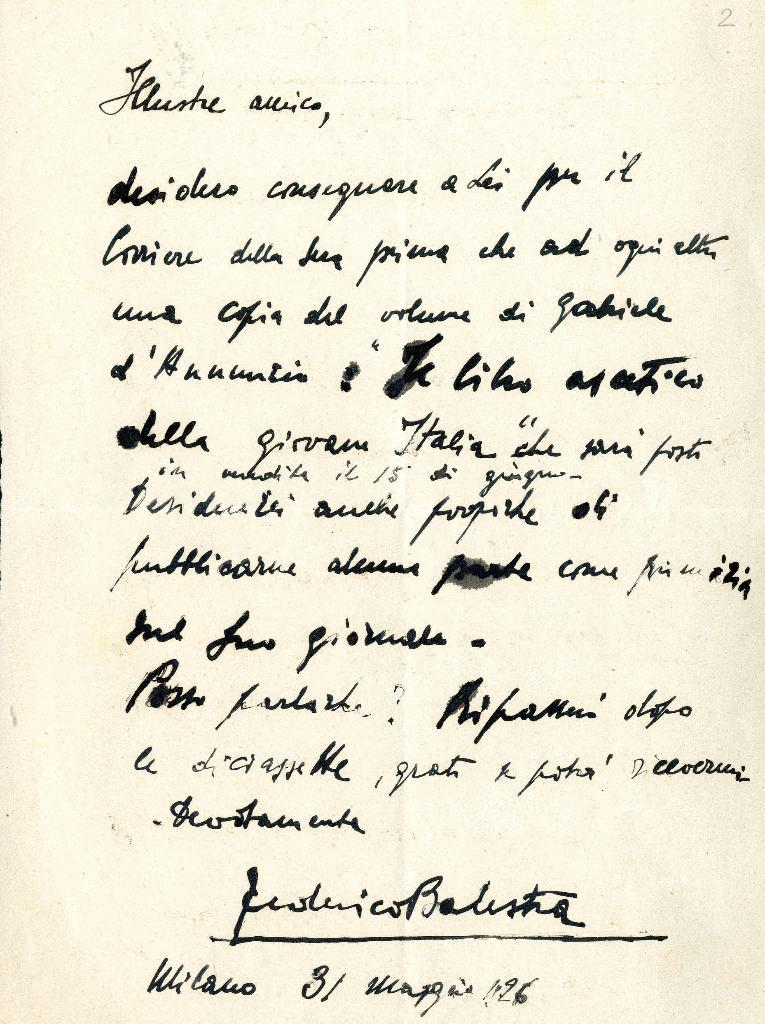 2
Illustre amico,
desidero consegnare a Lei per il
Corriere della Sera prima che ad ogni altro
una copia del volume di Gabriele
d'Annunzio: "Il libro ascetico
della giovane Italia" che sarà posto
in vendita il 15 di giugno-
Desidererei anche proporle di
pubblicarne alcuna parte come primizia
sul Suo giornale.
Posso parlarle? Ripasserò dopo
le diciassette, grato se potrà ricevermi
- Devotamente
Federico Balestra
Milano 31 maggio '26